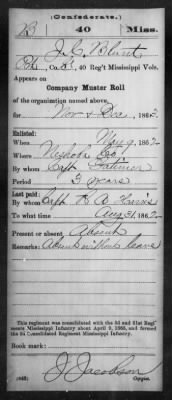 (Confederate.)
B 40 Miss.
J. C. Blunt
Pvt, Co. , 40 Reg't Mississippi Vols.
Appears on
Company Muster Roll
of the organization named above,
for Nov & Dec, 1862.
Enlisted:
When May 9, 1862
Where Neshoba Co
By whom Capt
Period 3 years
Last paid:
By whom Capt
To what time Aug 31, 1862
Present or absent Absent
Remarks: Absent without leave
This regiment was consolidated with the 3d and 31st Regi-
ments Mississippi Infantry about April 9, 1865, and formed
the 3d Consolidated Regiment Mississippi Infantry.
Book mark:
J. Jacobson
(642) Copyist.